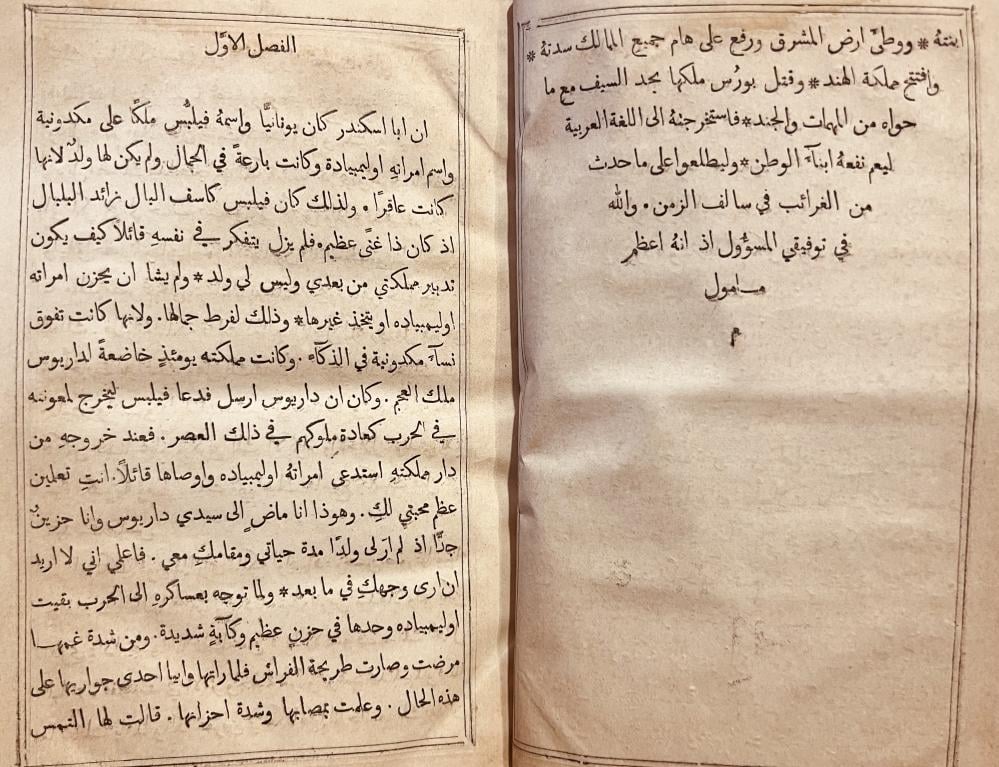 ابنتهُ * ووطئَ ارض المشرق ورفع على هام جميع الممالك سدتهُ *
وافتتح مملكة الهند * وقتل بورُس ملكها بحد السيف مع ما
حواه من المهمات والجند * فاستخرجتهُ الى اللغة العربية
ليعم نفعهُ ابنآءَ الوطن * وليطلعوا على ما حدث
من الغرائب في سالف الزمن . والله
في توفيقي المسؤول اذ انهُ اعظم
مامول
م
الفصل الاوَّل
ان ابا اسكندر كان يونانيًّا واسمهُ فيلبُّس ملكًا على مكدونية
واسم امراتهِ اوليمبياده وكانت بارعةً في الجمال ولم يكن لها ولدٌ لانها
كانت عاقرًا . ولذلك كان فيلبس كاسف البال زائد البلبال
اذ كان ذا غنًى عظيم . فلم يزل يتفكر في نفسهِ قائلاً كيف يكون
تدبير مملكتي من بعدي وليس لي ولد * ولم يشا ان يحزن امراته
اوليمبياده او يتخذ غيرها * وذلك لفرط جمالها . ولانها كانت تفوق
نسآءَ مكدونية في الذكآء . وكانت مملكته يومئذٍ خاضعةً لداريوس
ملك العجم . وكان ان داريوس ارسل فدعا فيلبس ليخرج لمعونته
في الحرب كعادة ملوكهم في ذلك العصر . فعند خروجهِ من
دار مملكتهِ استدعى امراتهُ اوليمبياده واوصاها قائلاً . انتِ تعلمين
عظم محبتي لكِ . وهوذا انا ماضٍ الى سيدي داريوس وانا حزينٌ
جدًّا اذ لم ارَ لي ولدًا مدة حياتي ومقامكِ معي . فاعلمي اني لا اريد
ان ارى وجهكِ في ما بعد * ولما توجه بعساكرهِ الى الحرب بقيت
اوليمبياده وحدها في حزنٍ عظيم وكآبةٍ شديدة . ومن شدة غمها
مرضت وصارت طريحة الفراش فلما راتها وابيا احدى جواريها على
هذه الحال . وعلمت بمصابها وشدة احزانها . قالت لها التمس